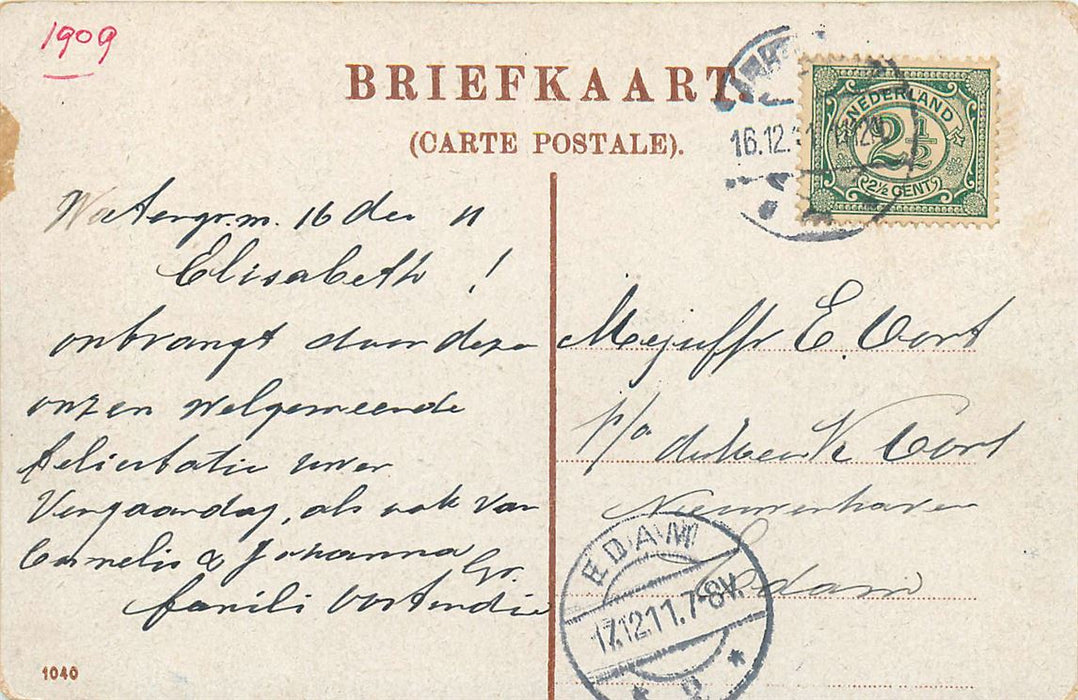 1909
BRIEFKAART.
(CARTE POSTALE).
16.12.
NEDERLAND
2½
2½ CENT
Watergr.m. 16 dec 11
Elisabeth !
ontvangt door deze
onzen welgemeende
felicitatie uwer
Verjaardag, als ook van
Cornelis & Johanna
Gr.
famili
Mejuffr E. Oort
p/a Oort
Nieuwenhaven
Edam
EDAM
17.12.11.7-8V.
1040